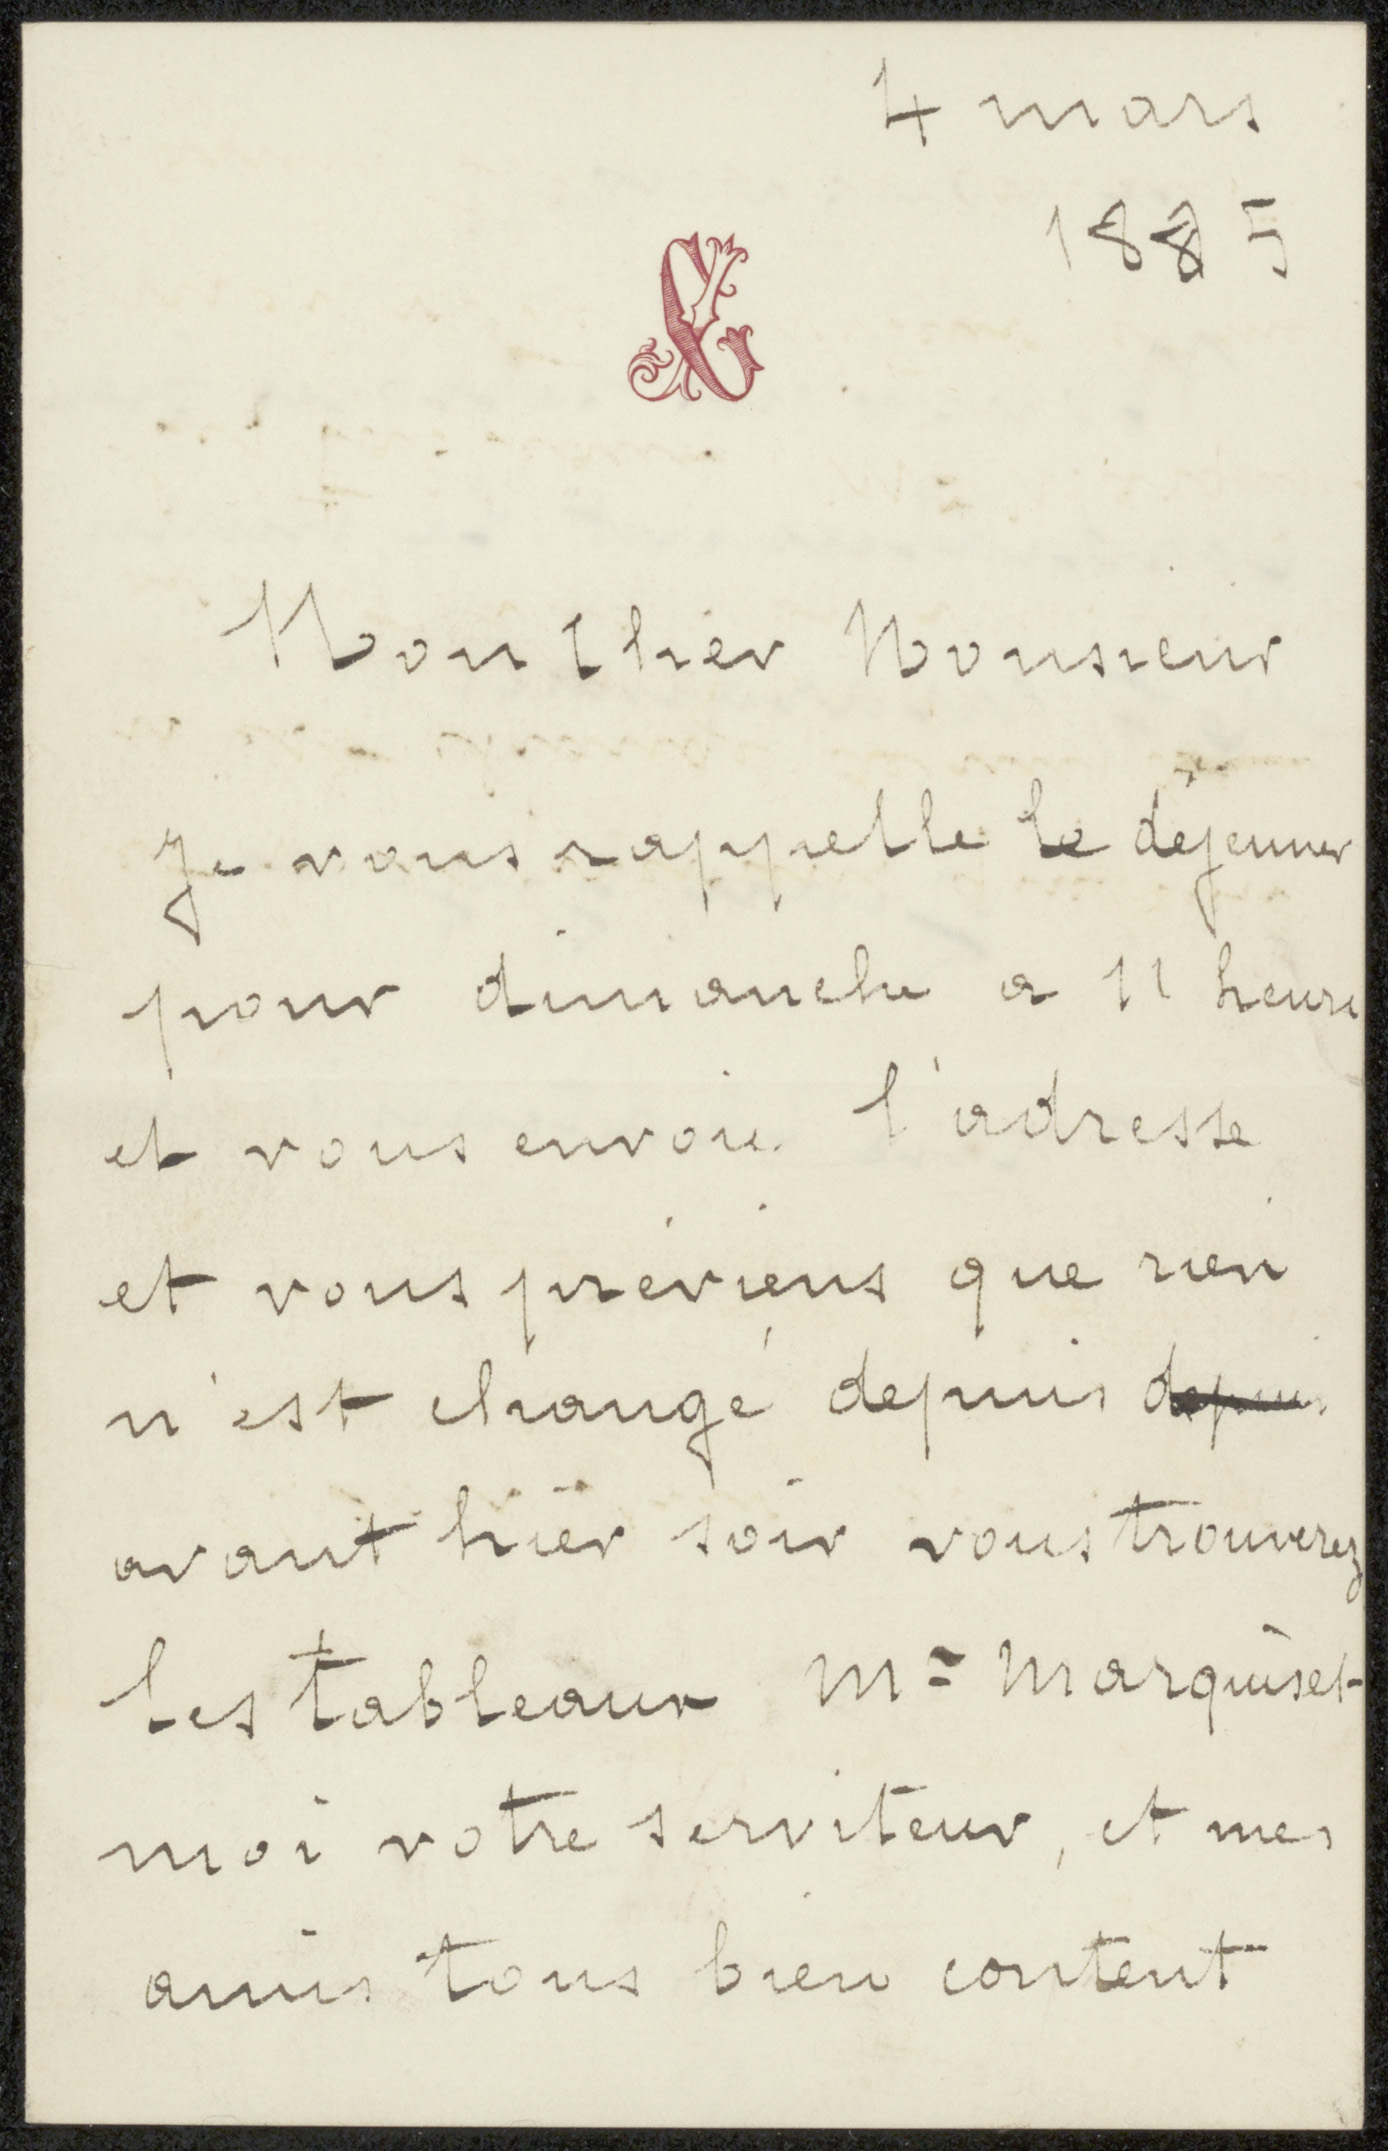 4 mars
1885
Mon Cher Monsieur
Je vous rappelle le déjeuner
pour dimanche a 11 heure
et vous envoie l'adresse
et vous préviens que rien
n'est changé depuis depuis
avant hier soir vous trouverez
les tableaux Mr Marquiset
moi votre serviteur, et mes
amis tous bien content